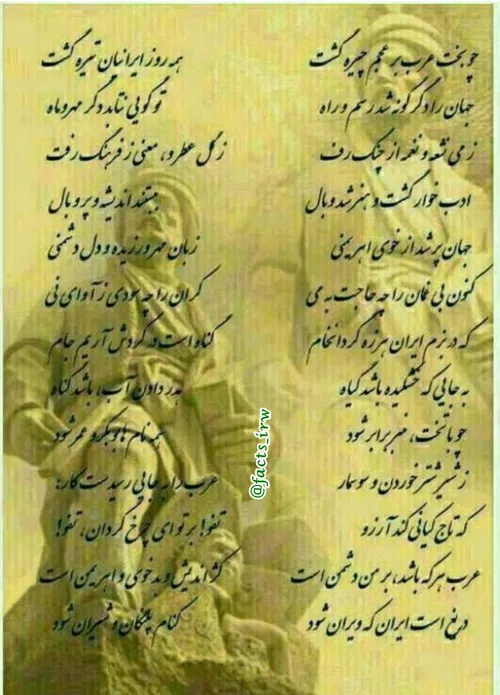 چو بخت عرب بر عجم چیره گشت
همه روز ایرانیان تیره گشت
جهان را دگرگونه شد رسم و راه
تو گویی نتابد دگر مهر و ماه
ز می نشعه و نغمه از چنگ رف
ز گل عطر و، معنی ز فرهنگ رفت
ادب خوار گشت و هنر شد وبال
ببستند اندیشه و پر و بال
جهان پر شد از خوی اهریمنی
زبان مهر ورزیده و دل دشمنی
کنون بی غمان را چه حاجت به می
کران را چه سودی ز آوای نی
که در بزم این هرزه گردانخام
گناه است در گردش آریم جام
به جایی که خشکیده باشد گیاه
هدر دادن آب، باشد گناه
چو با تخت، منبر برابر شود
همه نام هابوبکر و عمر شود
ز شیر شتر خوردن و سوسمار
عرب را به جایی رسیدست کار:
که تاج کیانی کند آرزو
تفو! بر تو ای چرخ گردان، تفو!
عرب هر که باشد، بر من دشمن است
کژ اندیش و بدخوی و اهریمن است
دریغ است ایران که ویران شود
کنام پلنگان و شیران شود
@facts_irw